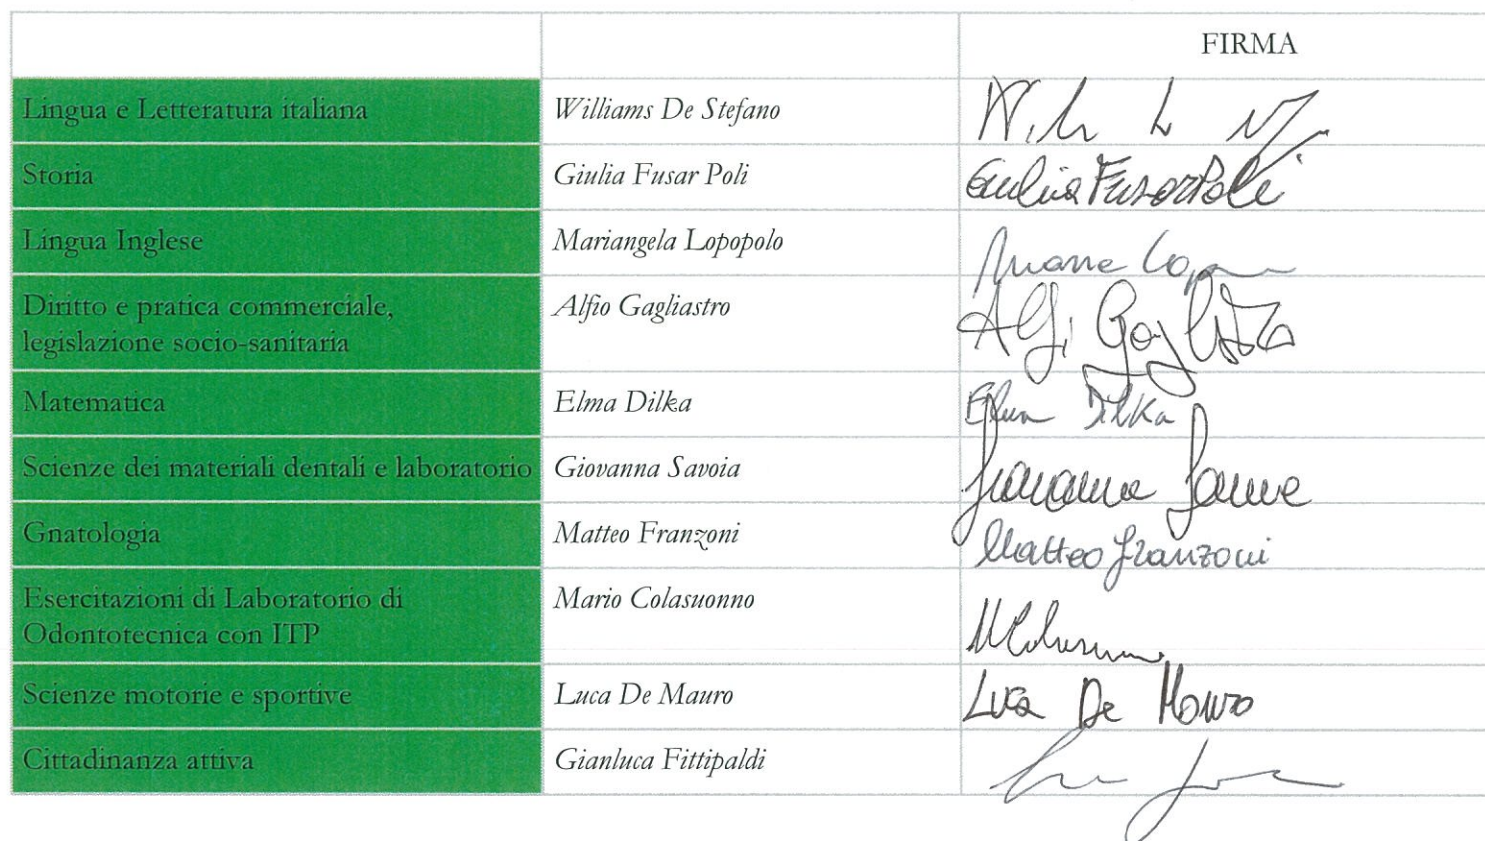 FIRMA
Lingua e Letteratura italiana Williams De Stefano
Storia Giulia Fusar Poli Giulia Fusar Poli
Lingua Inglese Mariangela Lopopolo
Diritto e pratica commerciale, Alfio Gagliastro
legislazione socio-sanitaria
Matematica Elma Dilka Elma Dilka
Scienze dei materiali dentali e laboratorio Giovanna Savoia
Gnatologia Matteo Franzoni Matteo Franzoni
Esercitazioni di Laboratorio di Mario Colasuonno
Odontotecnica con ITP
Scienze motorie e sportive Luca De Mauro Luca De Mauro
Cittadinanza attiva Gianluca Fittipaldi